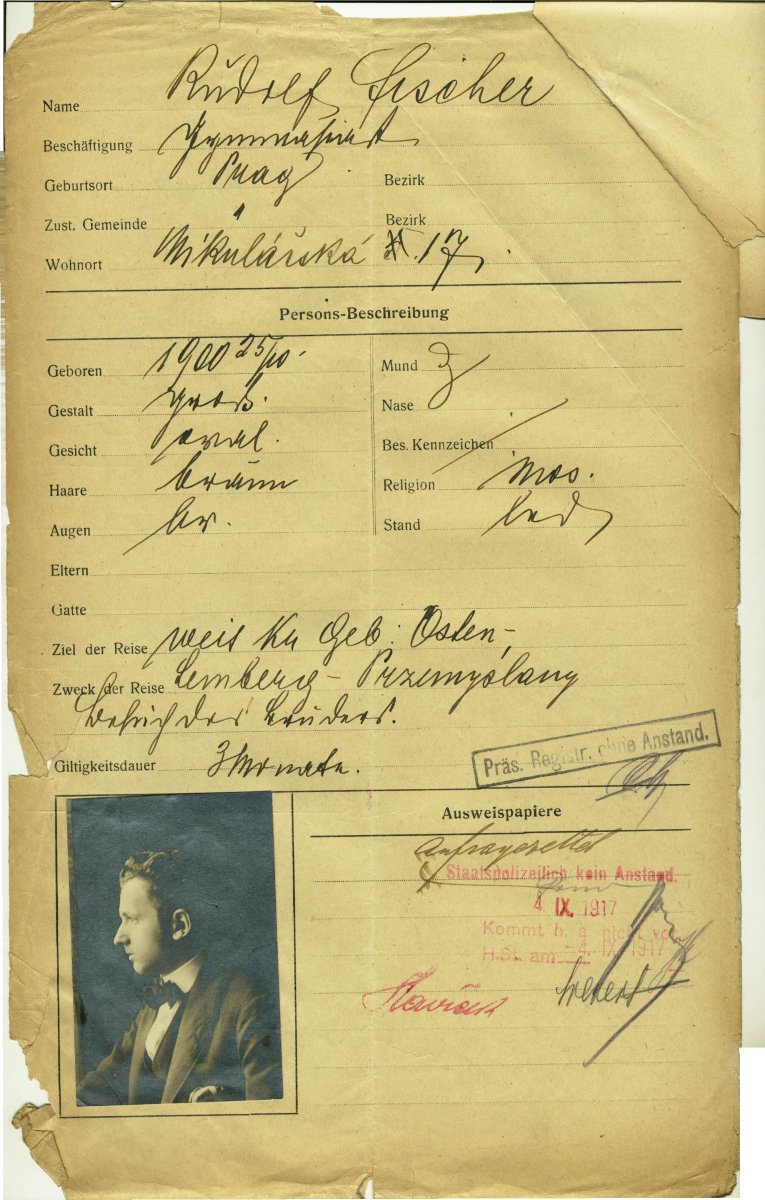 Name Rudolf Fischer
Beschäftigung Gymnasiast
Geburtsort Prag Bezirk
Zust. Gemeinde " Bezirk
Wohnort Mikulášská 17.
Persons-Beschreibung
Geboren 1900 25/10. Mund
Gestalt groß. Nase
Gesicht oval. Bes. Kennzeichen /
Haare braun Religion mos.
Augen br. Stand led
Eltern
Gatte
Ziel der Reise Geb: Osten,
Zweck der Reise Lemberg - Przemyślany
Besuch des Bruders.
Giltigkeitsdauer 3 Monate.
Präs. Registr. ohne Anstand.
Ausweispapiere
Anfragezettel
Staatspolizeilich kein Anstand.
4. IX. 1917
Kommt h. a. nicht vor
H.St. am -4. IX. 1917